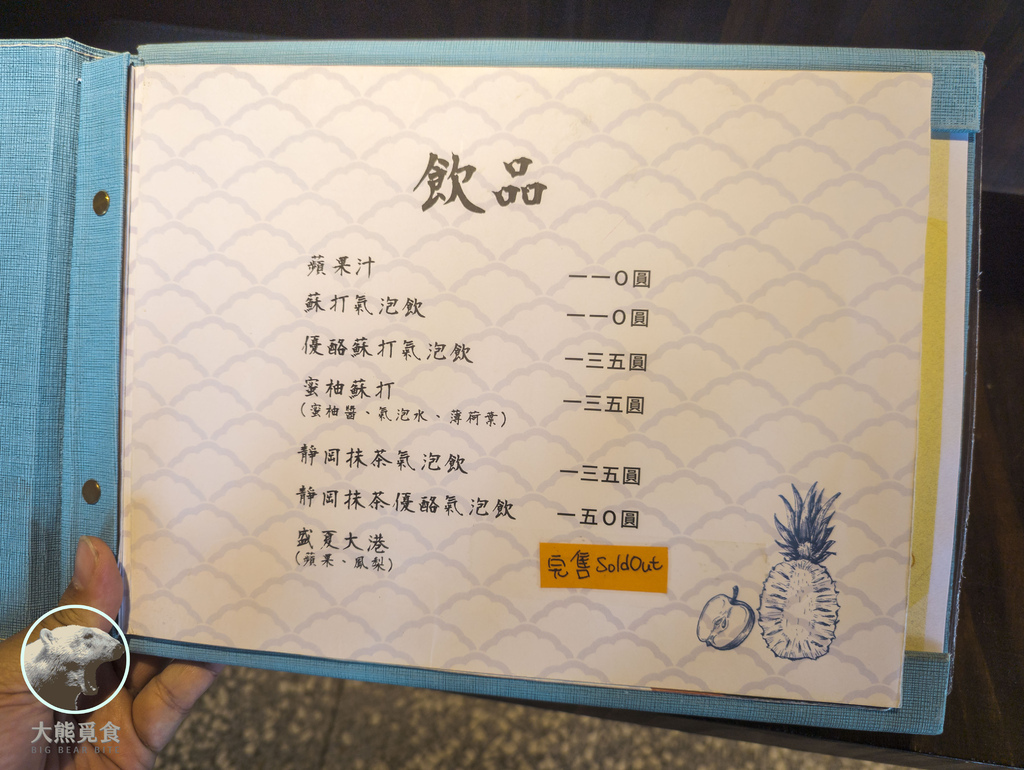 飲品
蘋果汁 一一０圓
蘇打氣泡飲 一一０圓
優酪蘇打氣泡飲 一三五圓
蜜柚蘇打 一三五圓
(蜜柚醬、氣泡水、薄荷葉)
靜岡抹茶氣泡飲 一三五圓
靜岡抹茶優酪氣泡飲 一五０圓
盛夏大港 完售 SoldOut
(蘋果、鳳梨)
大熊覓食
BIG BEAR BITE